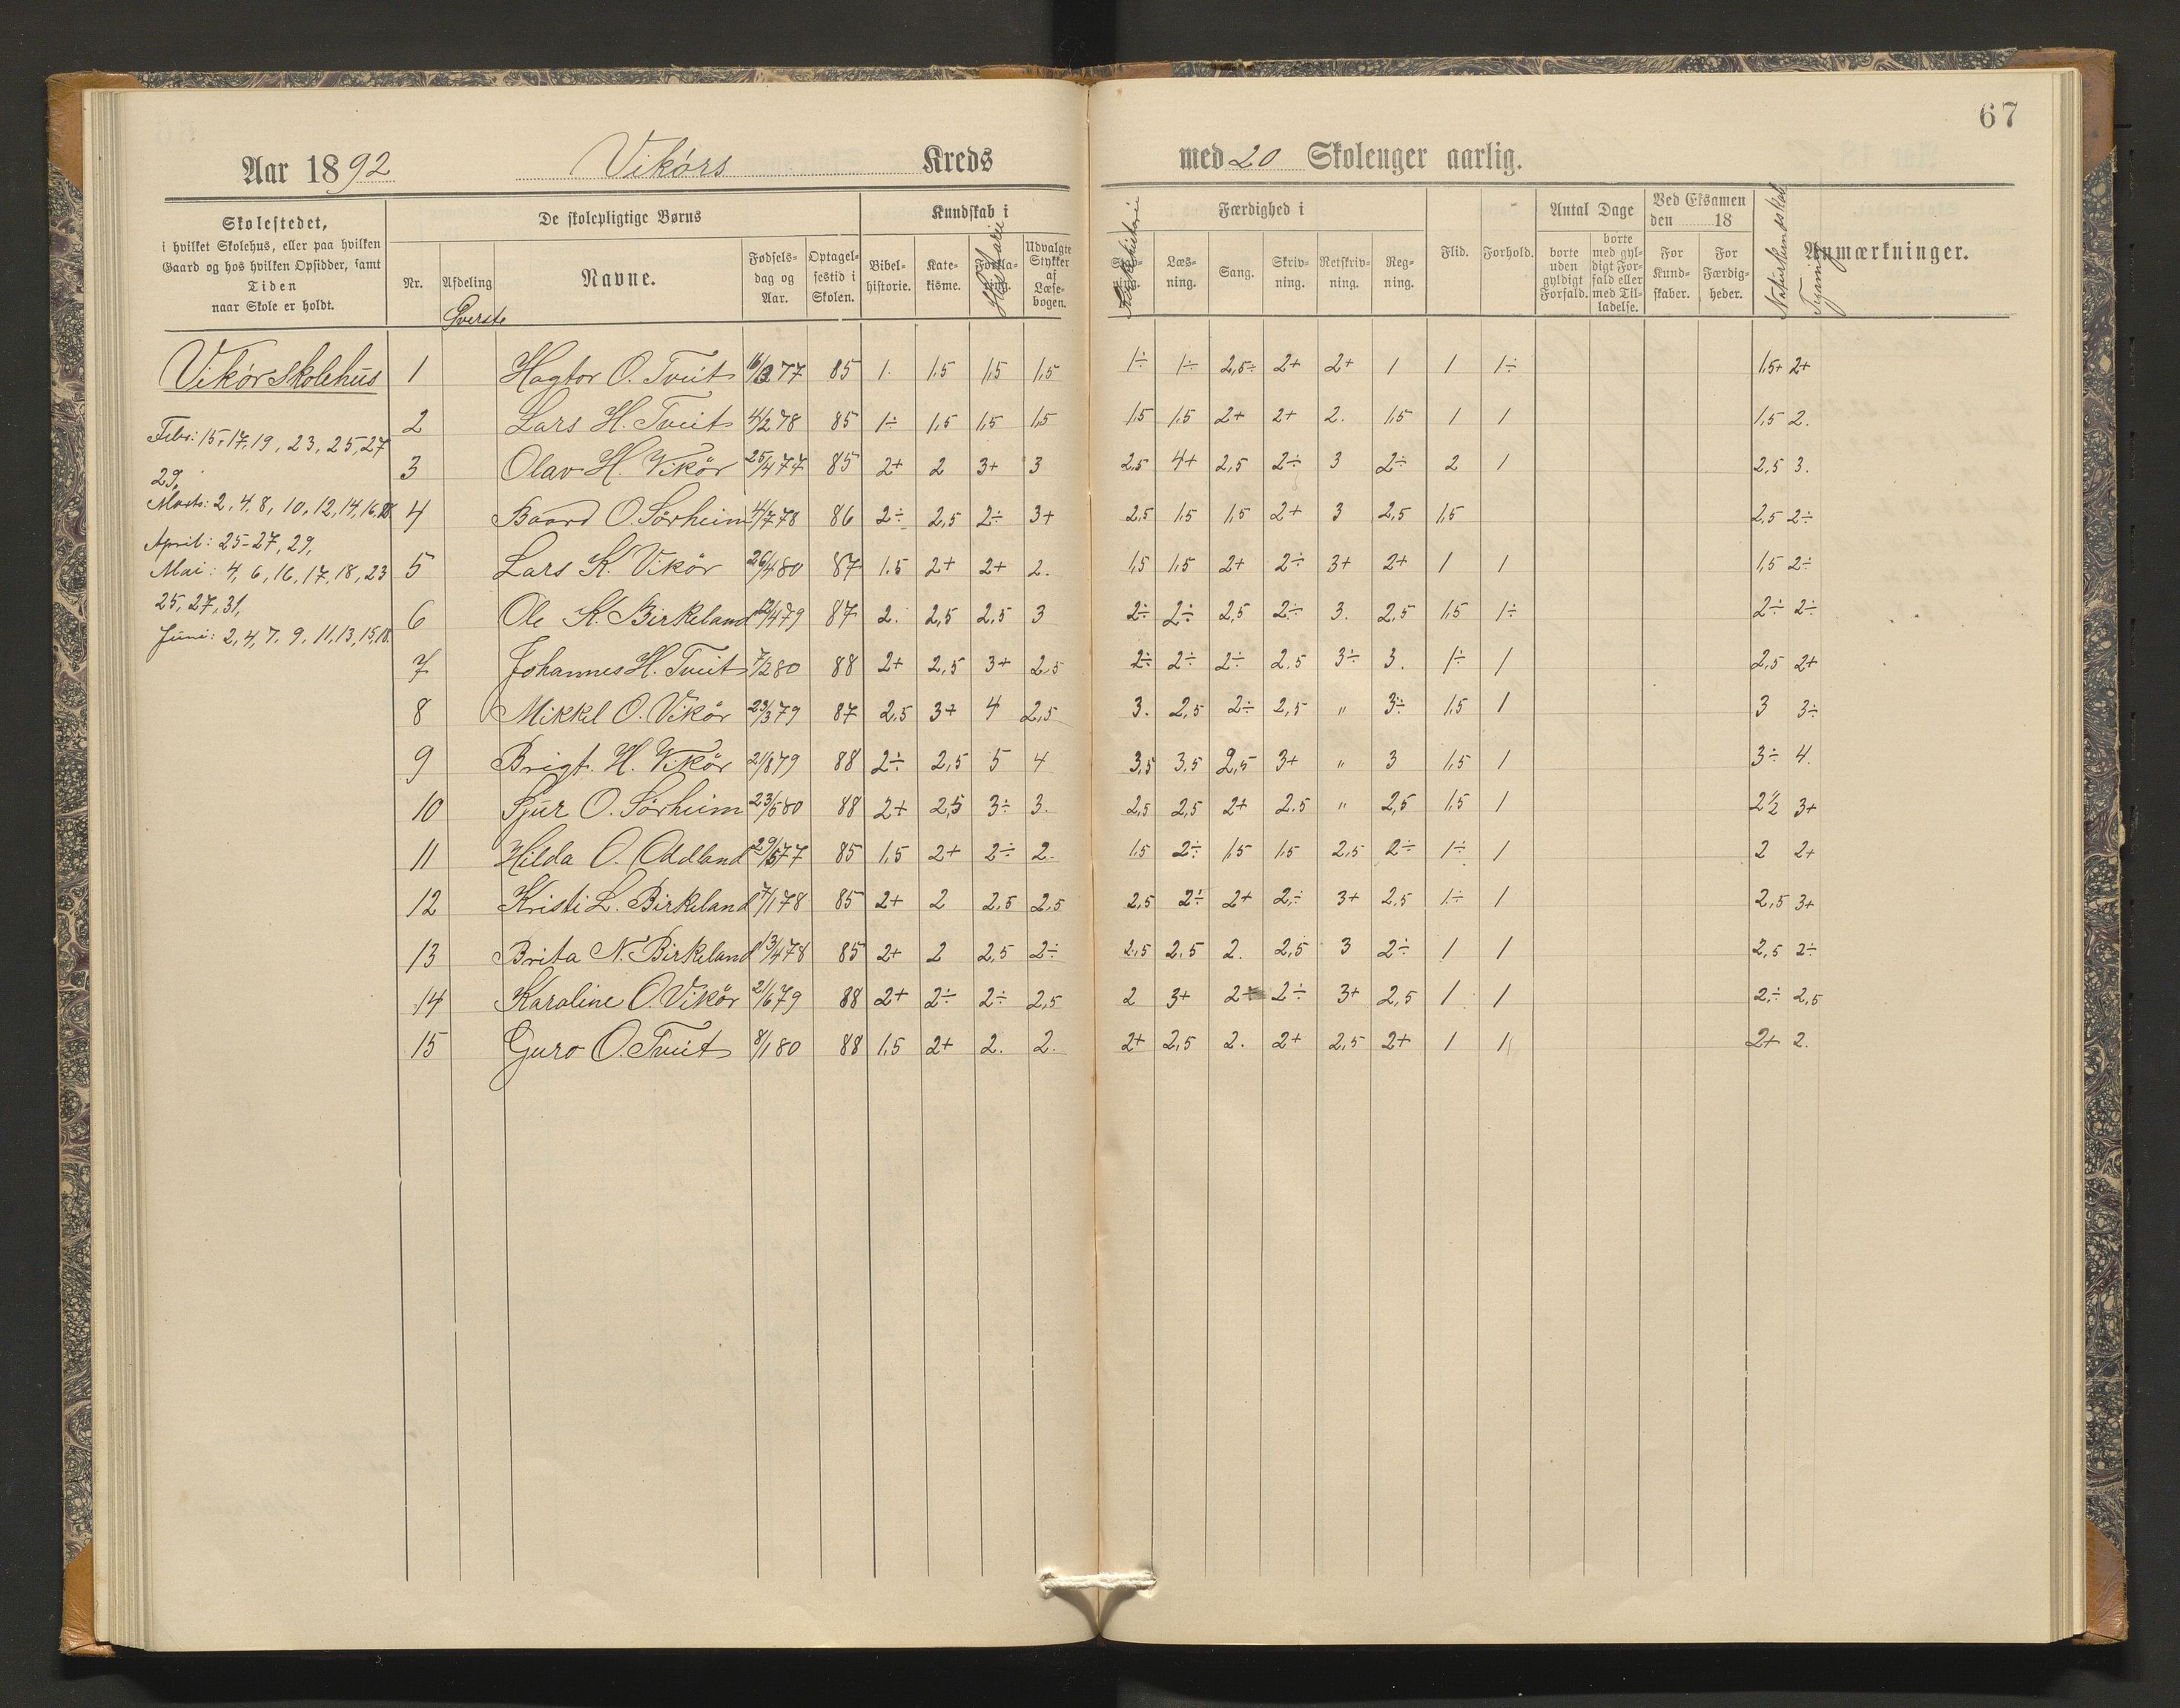 67
Aar 1892 Vikørs Kreds med 20 Skoleuger aarlig.
Skolestedet, i hvilket Skolehus, eller paa hvilken Gaard og hos hvilken Opsidder, samt Tiden naar Skole er holdt.
De skolepligtige Børns
Nr. Afdeling Navne. Fødselsdag og Aar. Optagelsestid i Skolen.
Øverste
Kundskab i
Bibelhistorie. Katekisme. Historie Udvalgte Stykker af Læsebogen.
Færdighed i
Kirkehistorie Læsning. Sang. Skrivning. Retskrivning. Regning.
Flid. Forhold.
Antal Dage
borte uden gyldigt Forfald. borte med gyldigt Forfald eller med Tilladelse.
Ved Eksamen den 18
For Kundskaber. For Færdigheder.
Naturkundskab Tegning
Anmærkninger.
Vikør skolehus
Febr: 15, 17, 19, 23, 25, 27
29,
Marts: 2, 4, 8, 10, 12, 14, 16, 18
April: 25-27, 29,
Mai: 4, 6, 16, 17, 18, 23
25, 27, 31,
Juni: 2, 4, 7, 9, 11, 13, 15, 18.
1 Hagtor O. Tveit 16/3 77 85 1. 1.5 1,5 1,5 1÷ 1÷ 2,5÷ 2+ 2+ 1 1 1÷ 1.5+ 2+
2 Lars H. Tveit 4/2 78 85 1÷ 1,5 1,5 1,5 1,5 1,5 2+ 2+ 2. 1,5 1 1 1,5 2.
3 Olav H. Vikör 25/4 77 85 2+ 2 3+ 3 2,5 4+ 2,5 2÷ 3 2÷ 2 1 2,5 3.
4 Baard O. Sörheim 4/7 78 86 2÷ 2,5 2÷ 3+ 2,5 1,5 1,5 2+ 3 2,5 1,5 2,5 2÷
5 Lars K. Vikör 26/4 80 87 1.5 2+ 2+ 2. 1,5 1,5 2+ 2÷ 3+ 2+ 1 1 1,5 2÷
6 Ole K. Birkeland 12/4 79 87 2. 2,5 2,5 3 2÷ 2÷ 2,5 2÷ 3. 2,5 1,5 1÷ 2÷ 2÷
7 Johannes H. Tveit 7/2 80 88 2+ 2,5 3+ 2,5 2÷ 2÷ 2÷ 2.5 3÷ 3. 1÷ 1 2,5 2+
8 Mikkel O. Vikör 23/3 79 87 2,5 3+ 4 2,5 3. 2,5 2÷ 2,5 " 3÷ 1.5 1 3 3÷
9 Brigt. H. Vikör 21/8 79 88 2÷ 2,5 5 4 3,5 3,5 2,5 3+ " 3 1,5 1 3÷ 4.
10 Sjur O. Sörheim 23/5 80 88 2+ 2,5 3÷ 3. 2,5 2,5 2+ 2.5 " 2,5 1,5 1 2½ 3+
11 Hilda O. Aadland 29/5 77 85 1,5 2+ 2÷ 2. 1,5 2÷ 1,5 1,5 2,5 2÷ 1÷ 1 2 2+
12 Kristi L. Birkeland 7/1 78 85 2+ 2 2,5 2,5 2,5 2÷ 2+ 2÷ 3+ 2,5 1÷ 1 2,5 3+
13 Brita N. Birkeland 13/4 78 85 2+ 2 2,5 2÷ 2,5 2,5 2. 2,5 3 2÷ 1 1 2,5 2÷
14 Karoline O. Vikör 21/6 79 88 2+ 2÷ 2÷ 2,5 2 3+ 2+ 2÷ 3+ 2,5 1 1 2÷ 2,5
15 Guro O. Tveit 8/1 80 88 1,5 2+ 2. 2. 2+ 2,5 2. 2+ 2,5 2+ 1 1 2+ 2.